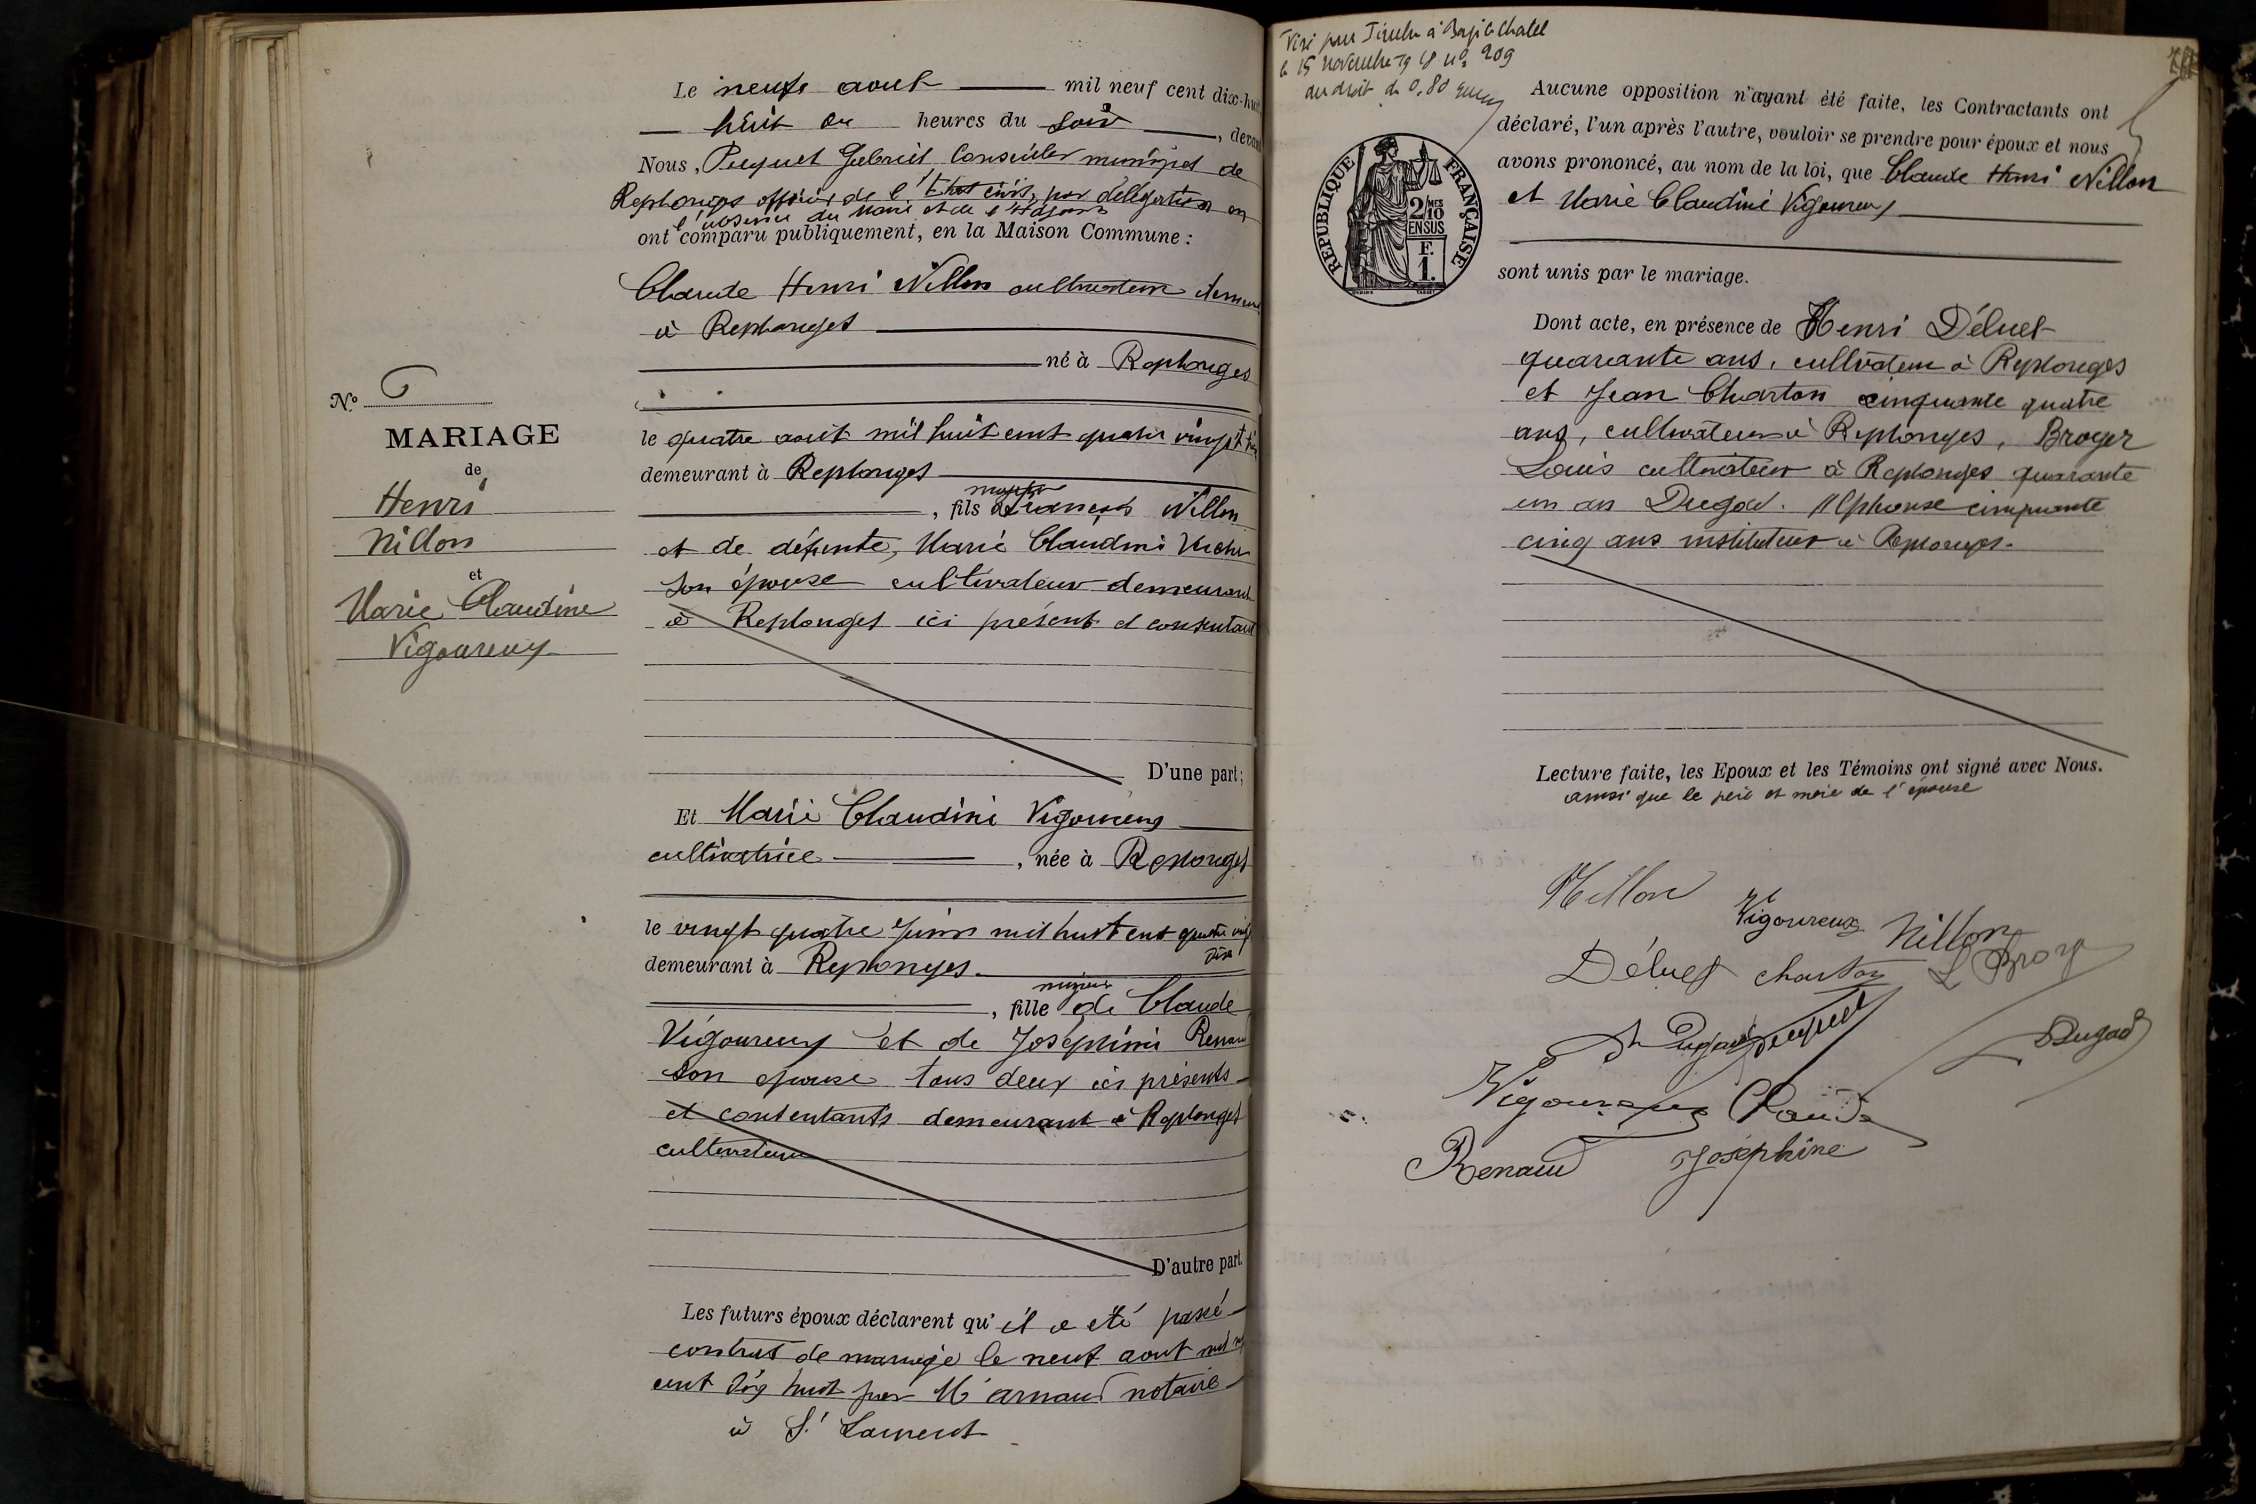 Le neuf aout mil neuf cent dix-hui
huit du heures du soir, devan
Nous, Puquet Gabriel Conseiller municipal de
Replonges officier de l'état civil, par délégation en
l'absence du Maire et de l'Adjoint
ont comparu publiquement, en la Maison Commune :
Claude Henri Nillon cultivateur demeur
à Replonges
né à Replonges
le quatre aout mil huit cent quatre vingt
demeurant à Replonges
majeur
, fils de François Nillon
et de défunte, Marie Claudine
son épouse cultivateur demeurant
à Replonges ici présent et consentant
D'une part ;
Et Marie Claudine Vigoureux
cultivatrice, née à Replonges
le vingt quatre Juin mil huit cent quatre ving
dix
demeurant à Replonges.
mineure
, fille de Claude
Vigoureux et de Joséphine Renau
son épouse tous deux ici présents
et consentants demeurant à Replonges
cultivateurs
D'autre part.
Les futurs époux déclarent qu'il a été passé
contrat de mariage le neuf aout mil n
cent dix huit par Me Arnaud notaire
à St Laurent
No 6
MARIAGE
de
Henri
Nillon
et
Marie Claudine
Vigoureux
Visé pour Timbre à Bagé le Chatel
le 15 novembre 1918 no 209
au droit de 0,80
Aucune opposition n'ayant été faite, les Contractants ont
déclaré, l'un après l'autre, vouloir se prendre pour époux et nous
avons prononcé, au nom de la loi, que Claude Henri Nillon
et Marie Claudine Vigoureux
sont unis par le mariage.
REPUBLIQUE FRANÇAISE
2/MES
10
EN SUS
F.
1.
Dont acte, en présence de Henri Déluet
quarante ans, cultivateur à Replonges
et Jean Charton cinquante quatre
ans, cultivateur à Replonges, Broyer
Louis cultivateur à Replonges quarante
un an Dugad. Alphonse cinquante
cinq ans instituteur à Replonges.
Lecture faite, les Epoux et les Témoins ont signé avec Nous.
ainsi que le père et mère de l'épouse
Nillon
Vigoureux
Nillon
Déluet
Charton
L Broye
Puquet
Dugad
Vigoureux Claude
Renaud Joséphine